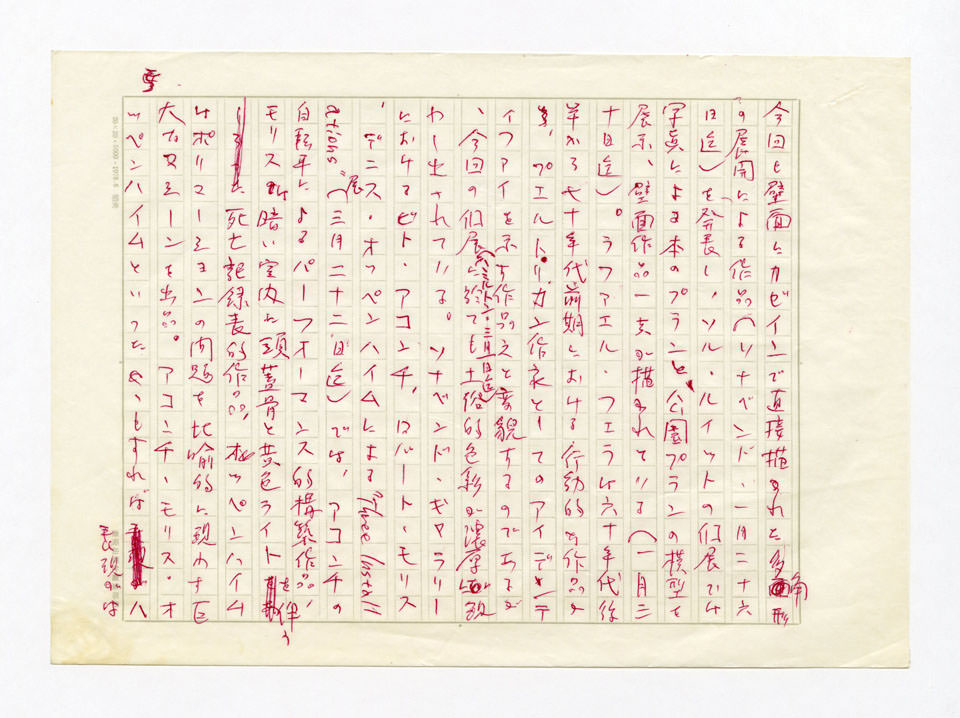 今回も壁面にカゼインで直接描かれた多角形
の展開による作品(ソナベンド、一月二十六
日迄)を発表し、ソル・ルイットの個展では
写真による本のプランと、公園プランの模型を
展示、壁面作品一点が描かれている(一月三
十日迄)。ラファエル・フェラは六十年代後
半から七十年代前期における行動的な作品か
ら、プエルト・リカン作家としてのアイデンテ
ィファイを示す作品えと変貌するのであるが
、今回の個展(ハミルトン、三月 日迄)に於ても土俗的色彩が濃厚に現
わし出されている。ソナベンド・ギャラリー
におけるビト・アコンチ、ロバート・モリス
、デニス・オッペンハイムによる"Three Install
ations"展(三月二十二日迄)では、アコンチの
自転車によるパーフォーマンス的構築作品、
モリスの暗い室内に頭蓋骨と黄色ライトを伴う
死亡記録表的作品、オッペンハイム
はポリューションの問題を比喩的に現わす巨
大なスプーンを出品。アコンチ・モリス・オ
ッペンハイムといった めいもすれば表現のはハ
20×20